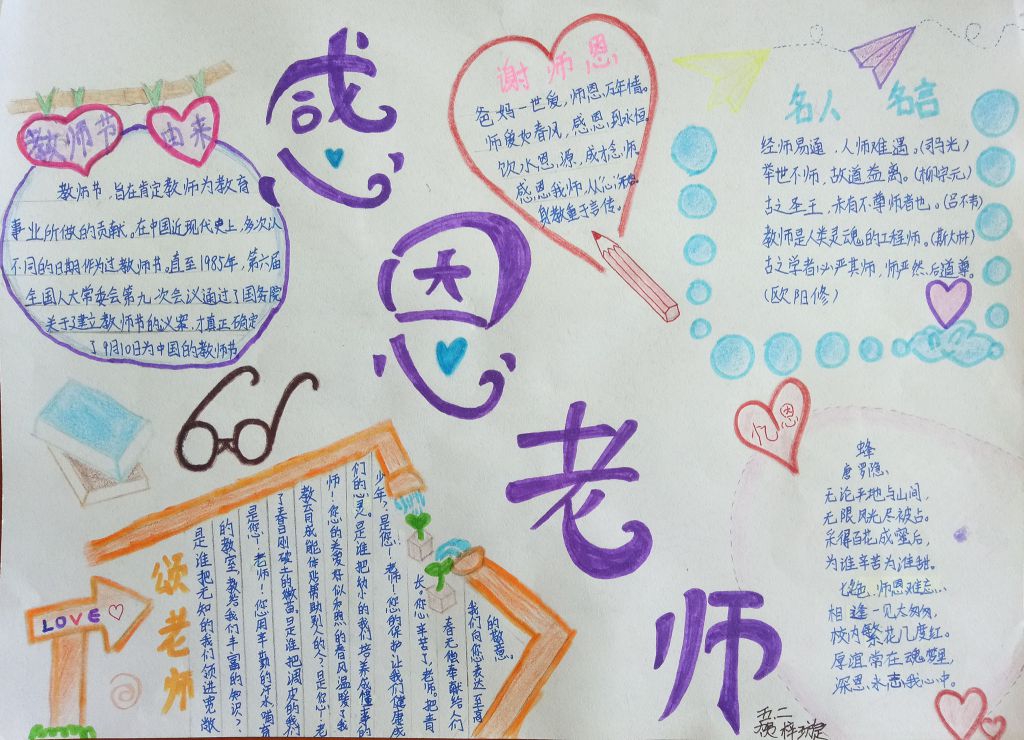 感恩老师
教师节
由来
教师节，旨在肯定教师为教育
事业所做的贡献。在中国近现代史上，多次以
不同的日期作为过教师节。直至1985年，第六届
全国人大常委会第九次会议通过了国务院
关于建立教师节的议案，才真正确定
了9月10日为中国的教师节
谢师恩
爸妈一世爱，师恩万年情。
师爱如春风，感恩到永恒。
饮水恩源，成才念师。
感恩我师，从心
身教重于言传。
名人 名言
经师易遇，人师难遇。(司马光)
举世不师，故道益离。(柳宗元)
古之圣王，未有不尊师者也。(吕不韦)
教师是人类灵魂的工程师。(斯大林)
古之学者必严其师，师严然后道尊。
(欧阳修)
LOVE
颂老师
是谁把无知的我们领进宽敞
的教室，教给我们丰富的知识？
是您！老师！您用辛勤的汗水哺育
了春日刚破土的嫩苗。是谁把调皮的我们
教育成能体贴帮助别人的人？是您！老
师！您的关爱好似和煦的春风温暖了我
们的心灵。是谁把幼小的我们培养成懂事的
少年？是您！老师！您的保护让我们健康成
长。您辛苦了，老师。把青
春无偿奉献给人们
我们向您表达至高
的敬意。
忆恩
蜂
唐罗隐
无论平地与山间，
无限风光尽被占。
采得百花成蜜后，
为谁辛苦为谁甜。
七绝 师恩难忘
相逢一见太匆匆，
校内繁花几度红。
厚谊常在魂梦里，
深恩永志我心中。
五.二
梓琁